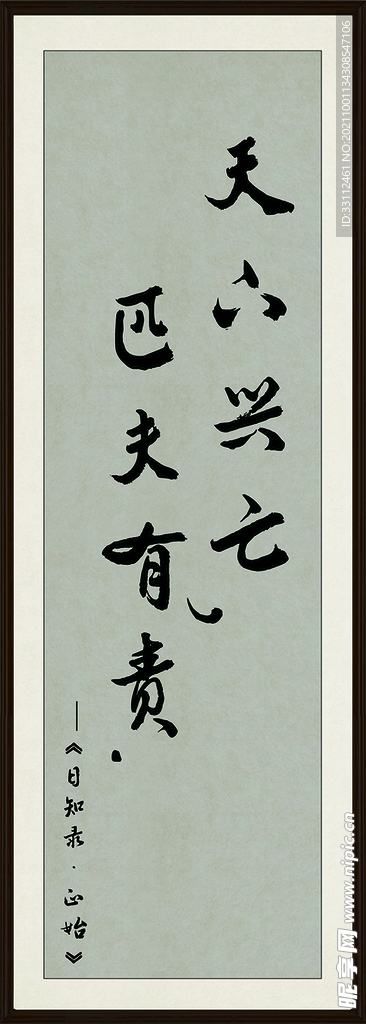 天下兴亡，
匹夫有责.
——《日知录·正始》
ID:33112461 NO:20211001134308547106
昵享网 www.nipic.cn